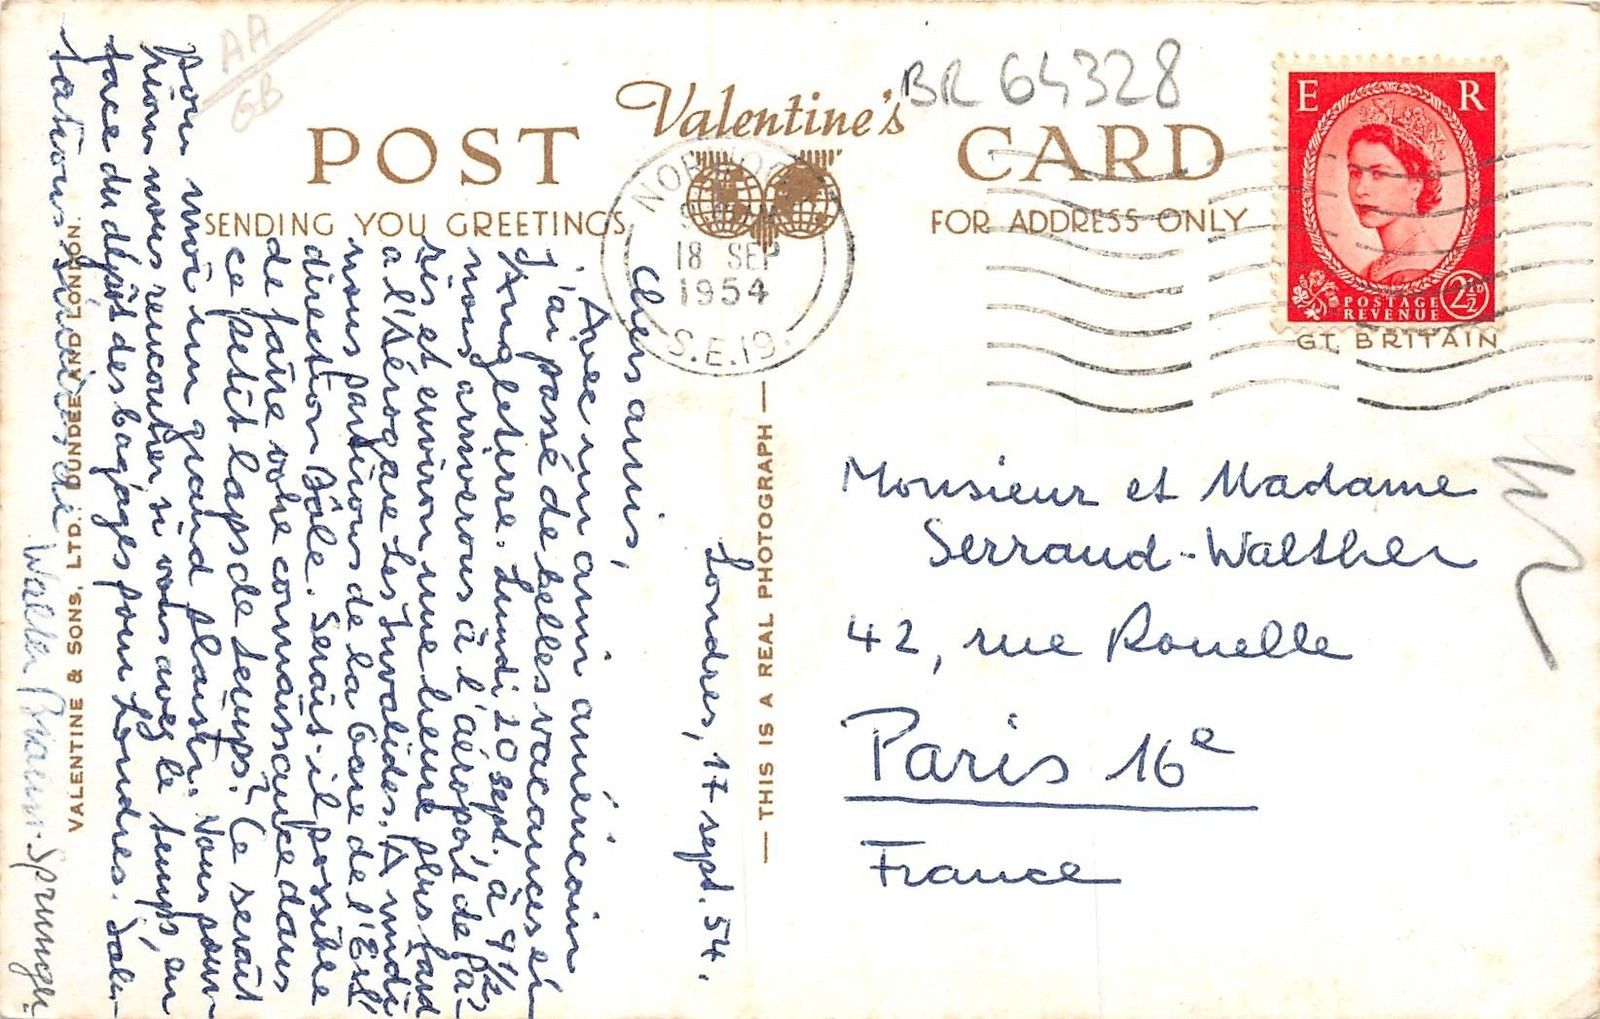 AA
GB
BR 64328
Valentine's
POST CARD
SENDING YOU GREETINGS
FOR ADDRESS ONLY
NORWOOD
18 SEP
1954
S.E.19.
E R
POSTAGE
REVENUE
2½
GT. BRITAIN
Londres, 17 sept. 54.
Chers amis,
Avec un ami américain
j'ai passé de belles vacances en
Angleterre. Lundi 20 sept. à 9 1/2
nous arriverons à l'aéroport de Pa-
ris et environ une heure plus tard
à l'Aérogare Les Invalides. A midi
nous partirons de la Gare de l'Est
direction Bâle. Serait-il possible
de faire votre connaissance dans
ce petit laps de temps? Ce serait
pour moi un grand plaisir. Nous pour-
rions nous rencontrer si vous avez le temps, en
face du dépôt des bagages pour Londres. Salu-
tations
Walter Braun-Sprunger
VALENTINE & SONS, LTD., DUNDEE AND LONDON.
— THIS IS A REAL PHOTOGRAPH —
Monsieur et Madame
Serraud-Walther
42, rue Rouelle
Paris 16e
France